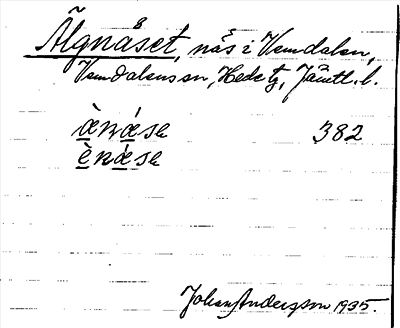 Älgnåset, nås i Vemdalen,
Vemdalens sn, Hede tg, Jämtl. l.
ὰnάse 382
ὲnάse
Johan Andersson 1935.